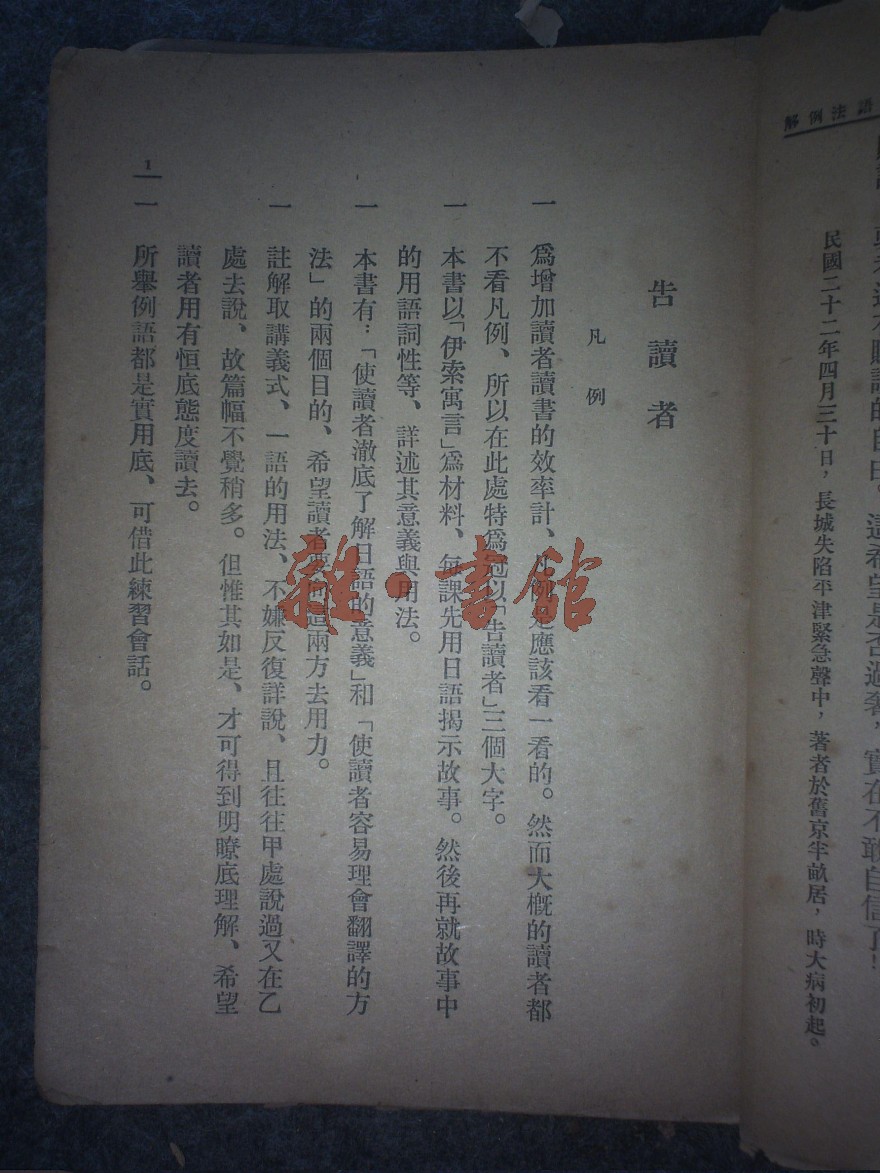 語法例解
民國二十二年四月三十日，長城失陷平津緊急聲中，著者於舊京半畝居，時大病初起。
告讀者
凡例
一 爲增加讀者讀書的效率計、凡例是應該看一看的。然而大槪的讀者都
不看凡例、所以在此處特爲冠以「告讀者」三個大字。
一 本書以「伊索寓言」爲材料、每課先用日語揭示故事。然後再就故事中
的用語詞性等、詳述其意義與用法。
一 本書有：「使讀者澈底了解日語的意義」和「使讀者容易理會翻譯的方
法」的兩個目的、希望讀者要向這兩方去用力。
一 註解取講義式、一語的用法、不嫌反復詳說、且往往甲處說過又在乙
處去說、故篇幅不覺稍多。但惟其如是、才可得到明瞭底理解、希望
讀者用有恒底態度讀去。
一 所舉例語都是實用底、可借此練習會話。
1
雜·書館